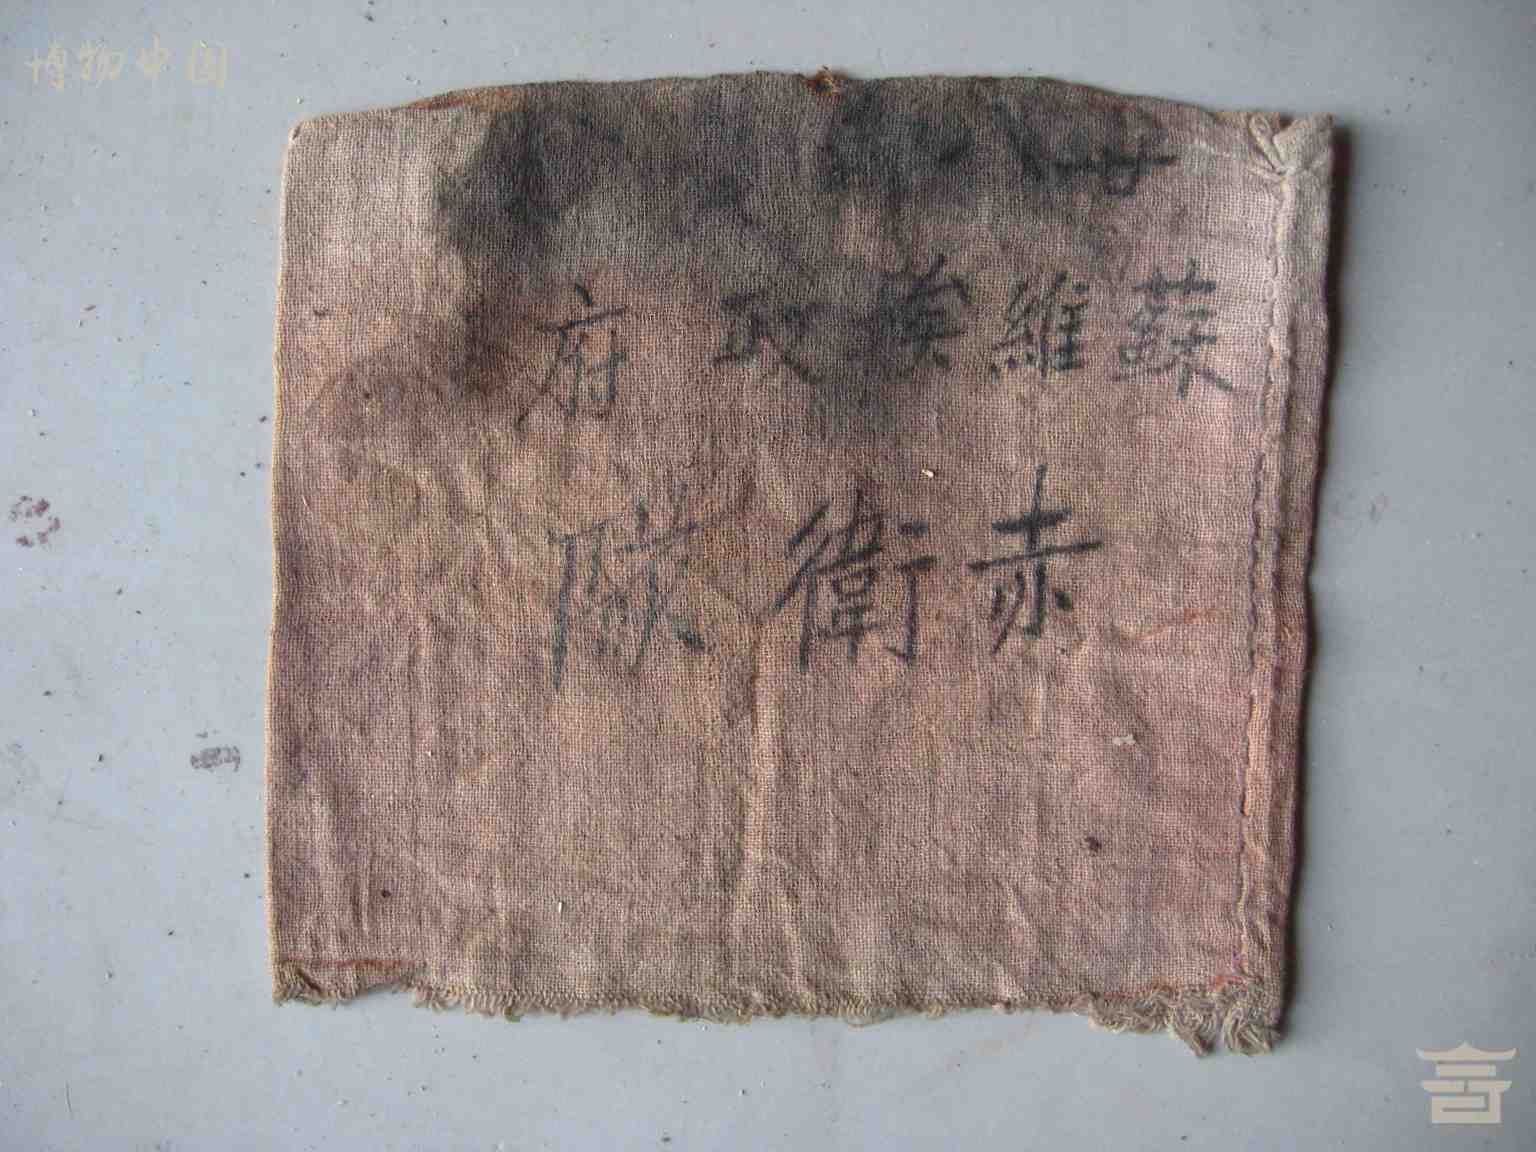 博物中国
蘇維埃政府
赤衛隊